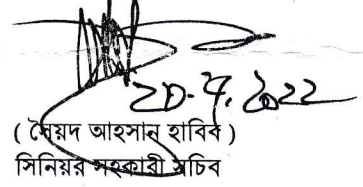 20.7.2022
( সৈয়দ আহসান হাবিব )
সিনিয়র সহকারী সচিব